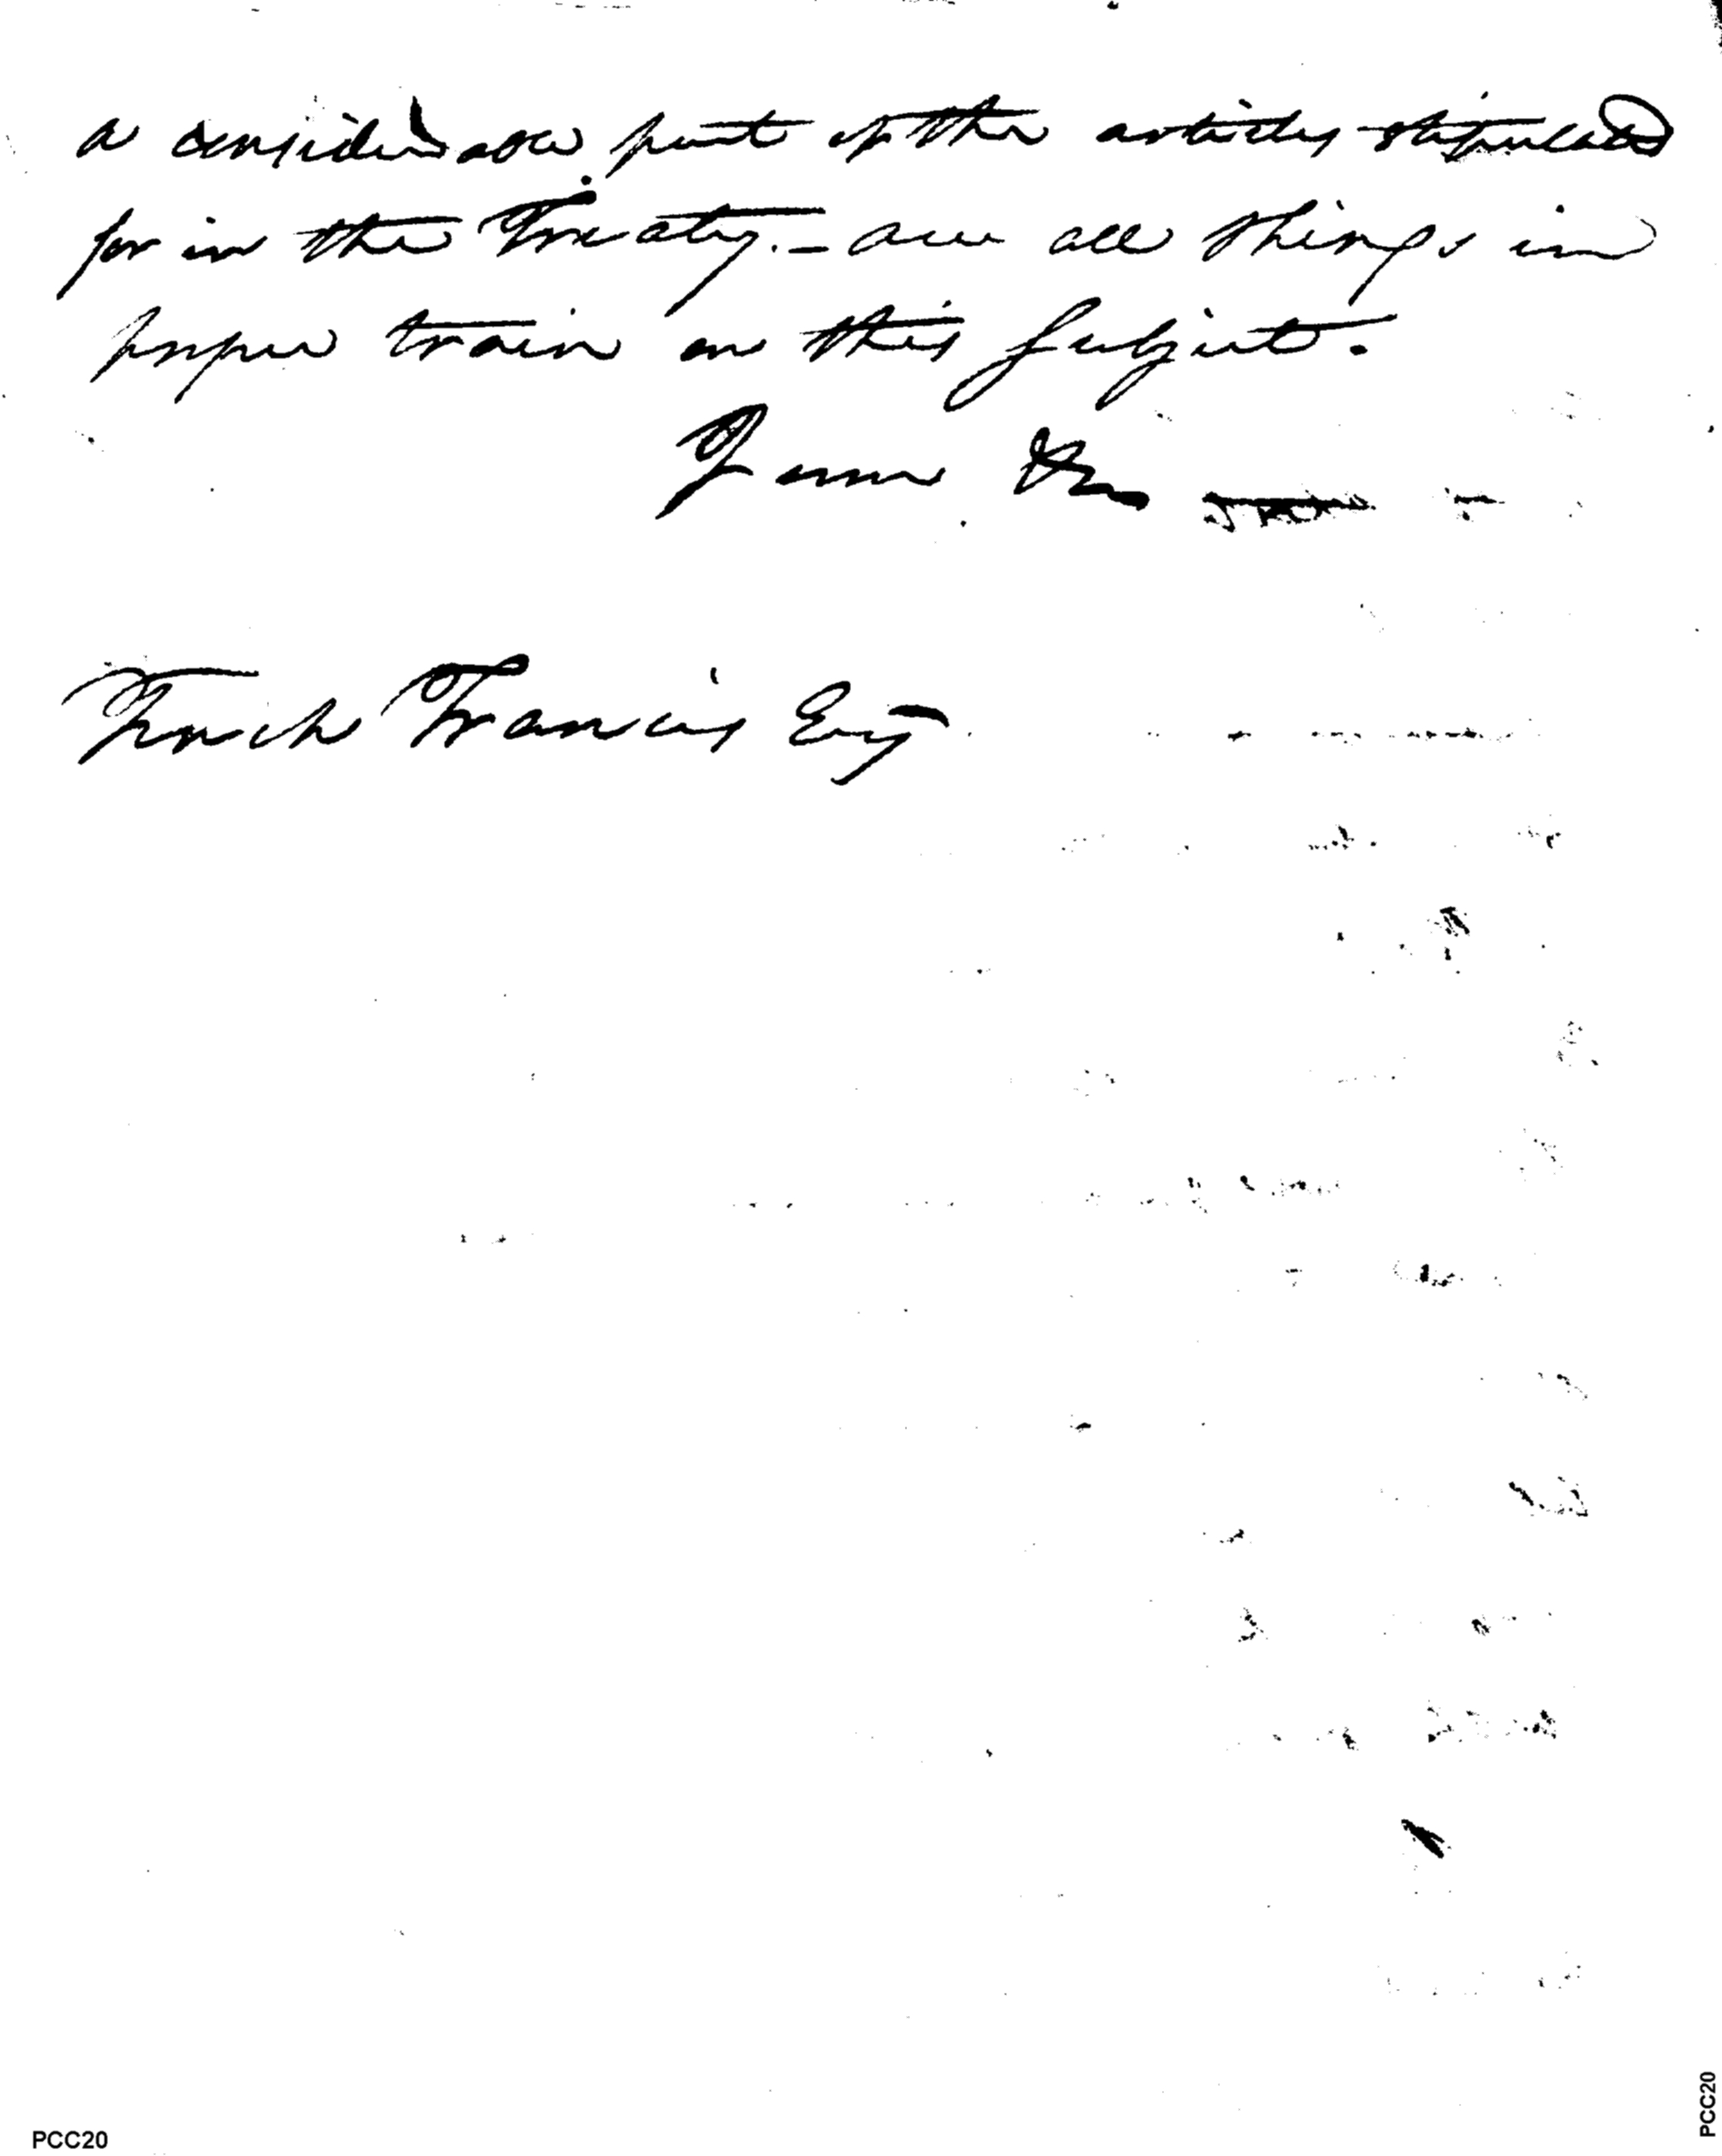 a considerable part of the articles stipulated
for in the Treaty. — are all things in
proper train on this subject.
I am &c
Tench Francis Esqr
PCC20
PCC20